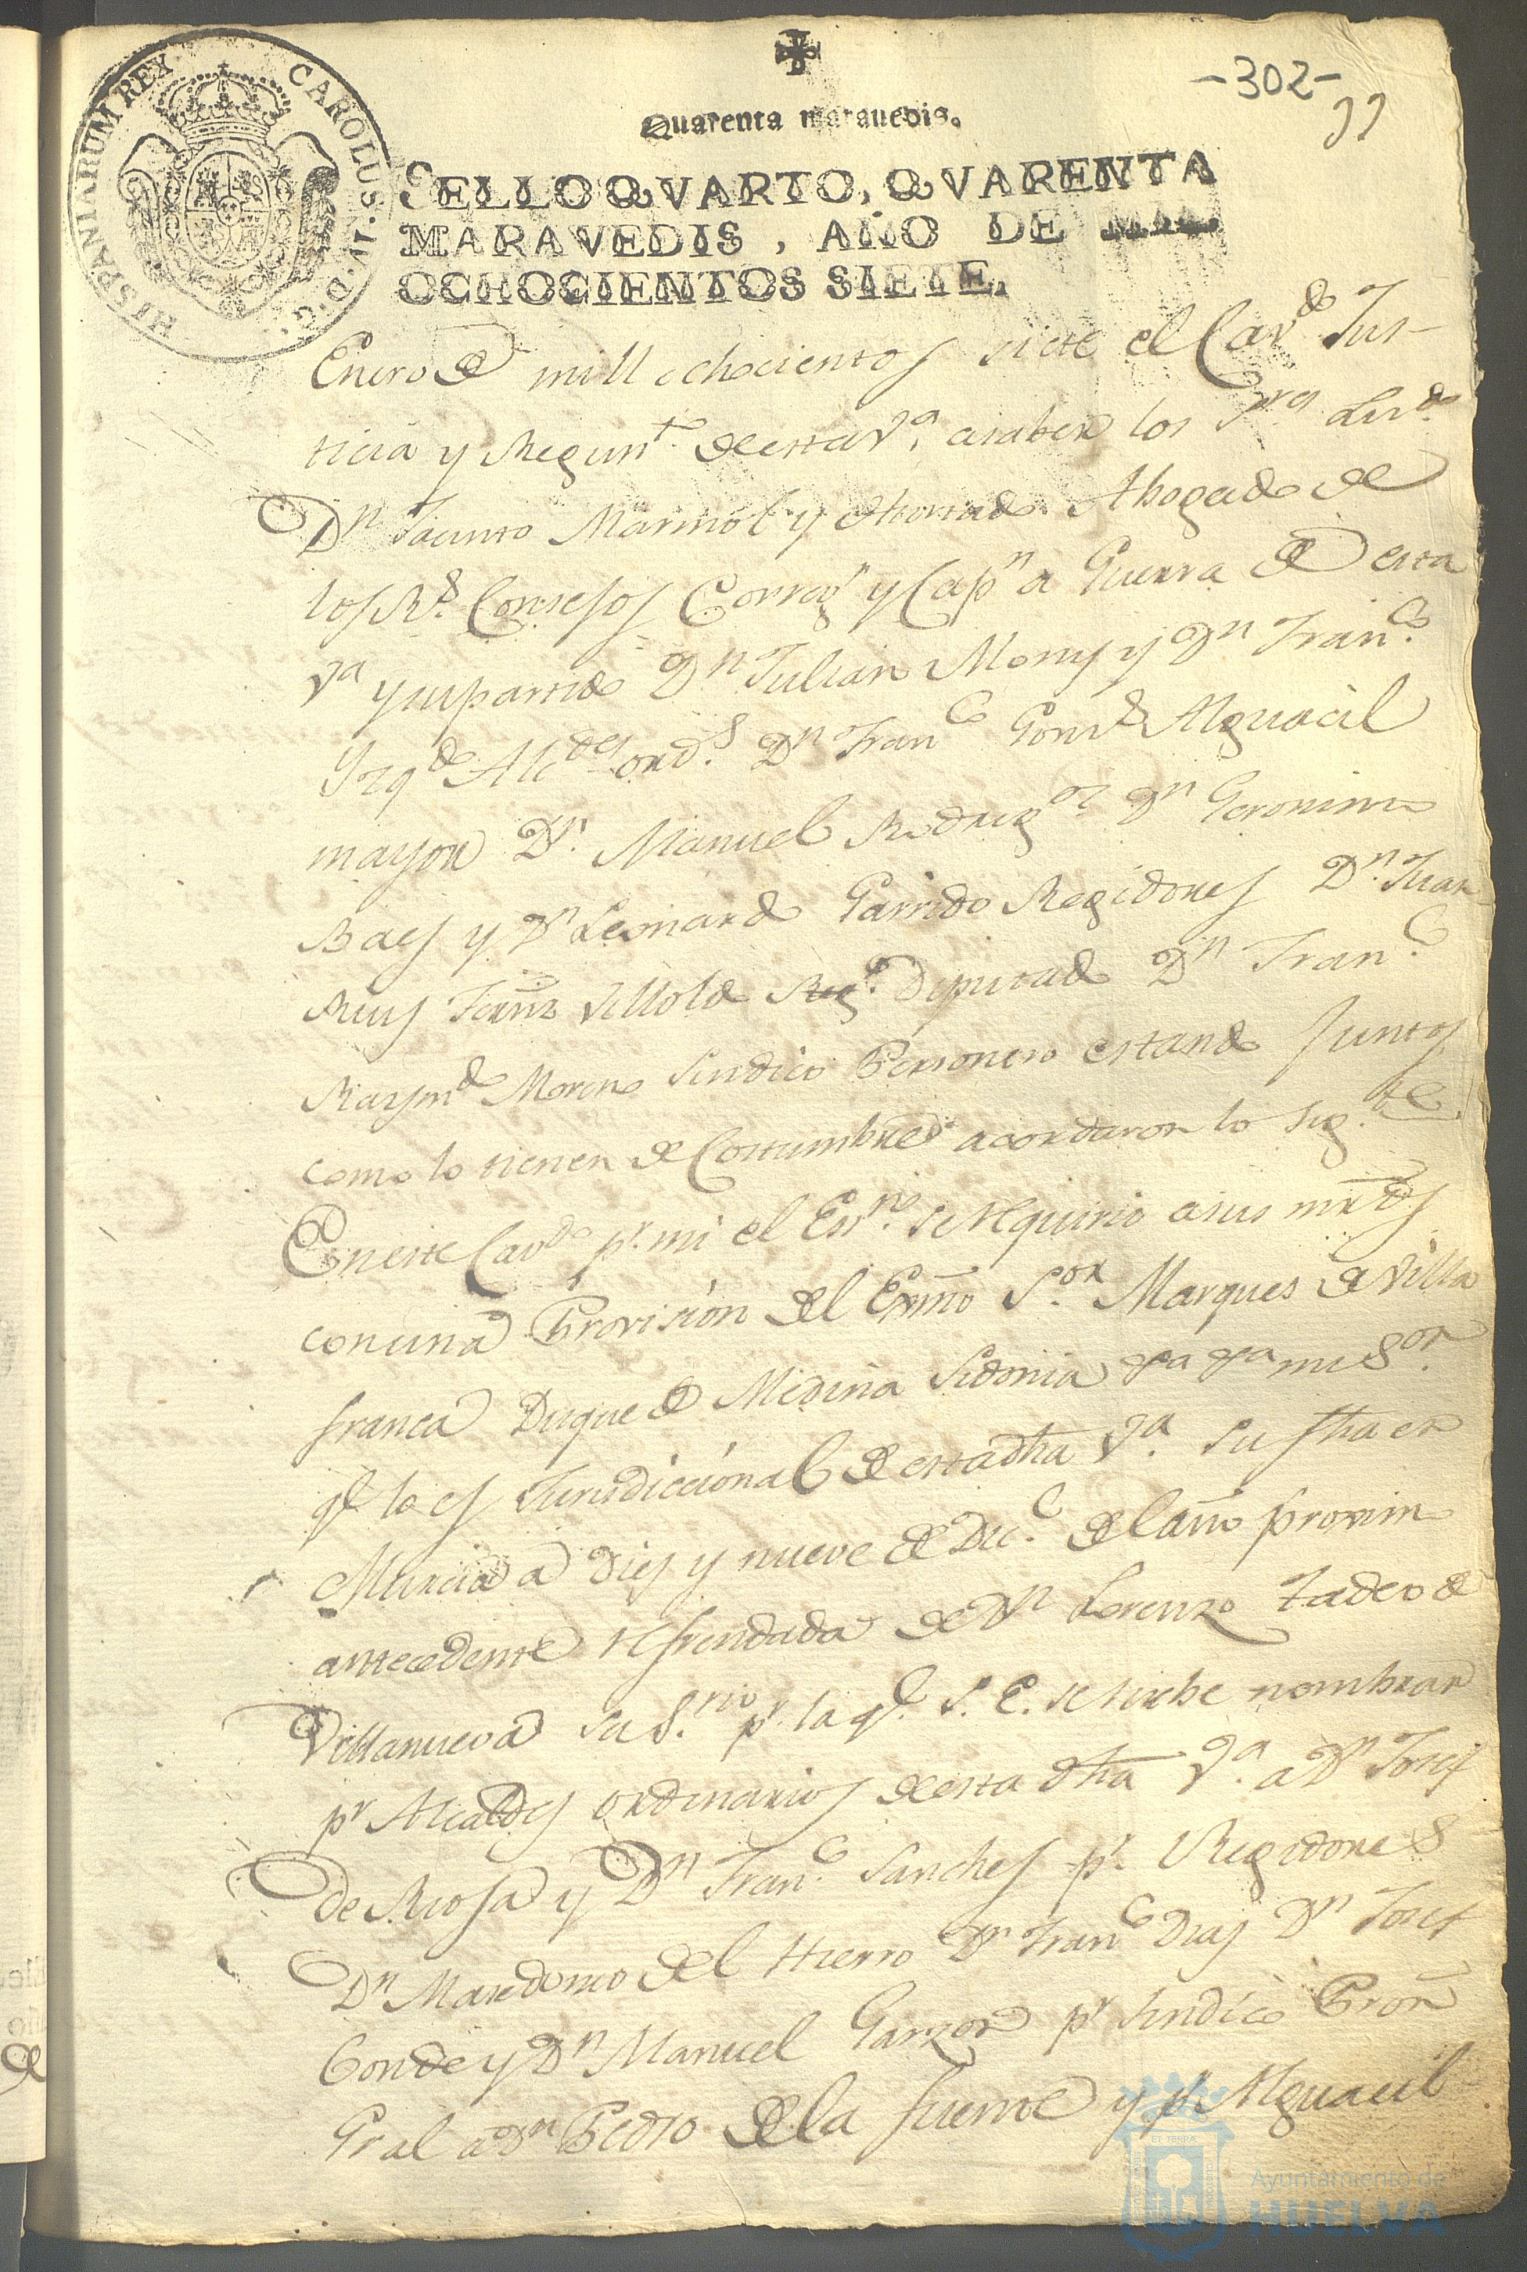 -302-
Quarenta marauedis.
HISPANIARUM REX CAROLUS IV. D. G.
SELLO QVARTO, QVARENTA
MARAVEDIS, AÑO DE MIL
OCHOCIENTOS SIETE.
Enero de mill ochocientos siete el Cavdo Jus-
ticia y Regimto de esta Va. a saber los Sres Licdo
Dn Jacinto Marmol y Hurtado Abogado de
los Rs Consejos Corregr y Capn a Guerra de esta
Va y su partido Dn Julian Mony y Dn Franco
Izqdo Alcdes ords. Dn Franco Gonz Alguacil
mayor Dn. Manuel Rodrigez Dn Geronimo
Baes y Dn Leonardo Garrido Regidores Dn. Juan
Ruis Fernz Diputado Dn Franco
Raymdo Moreno Sindico Personero estando Juntos
como lo tienen de Costumbre acordaron lo sigte
En este Cavdo pr. mi el Essno. se requirio a sus mrds
con una Provision del Exmo Sor Marques de Villa
franca Duque de Medina Sidonia mi Sor
qe lo es Jurisdiccional de esta dha Va. su fha en
Murcia a dies y nueve de Dice. del año proximo
antecedente refrendada de Dn Lorenzo Tadeo de
Villanueva su Srio pr. la qe. S. E. se sirbe nombrar
pr Alcaldes ordinarios de esta dha Va. a Dn Josef
de Rioja y Dn Franco Sanches pr. Regidores
Dn Mardonio del Hierro Dn Franco Dias Dn Josef
Conde y Dn Manuel Garzon pr Sindico Pror
Gral a Dn Pedro de la Fuente y pr Alguacil
Ayuntamiento de
HUELVA